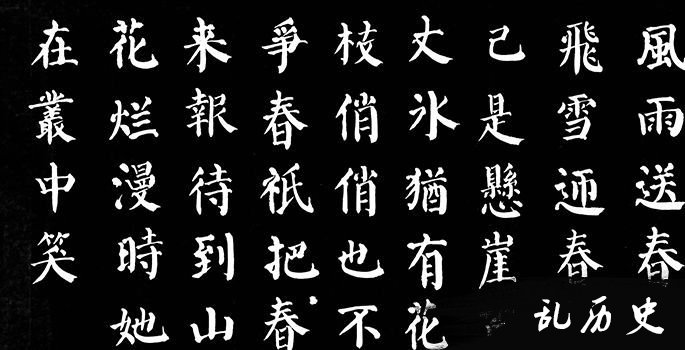 風雨送春
飛雪迎春
己是懸崖
丈氷猶有花
枝俏俏也不
爭春衹把春
来報待到山
花烂漫時她
在叢中笑
乱历史